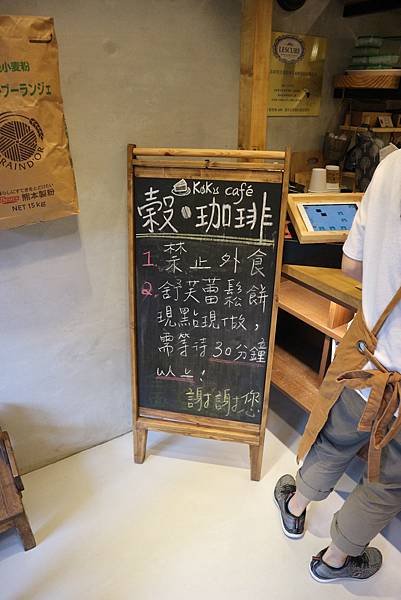 KoKu café
穀・珈琲
1. 禁止外食
2. 舒芙蕾鬆餅
現點現做,
需等待30分鐘
以上!
謝謝您
小麦粉
ブーランジェ
GRAIN D'OR
熊本製粉
NET 15kg
LESCURE